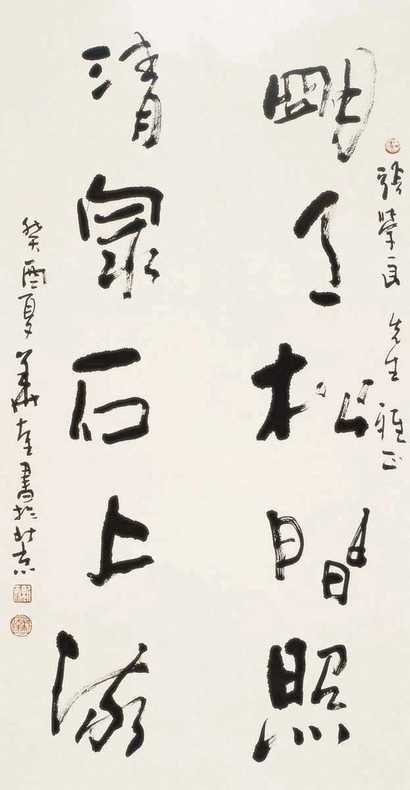 張榮良先生雅正
明月松間照
清泉石上流
癸酉夏書於北京